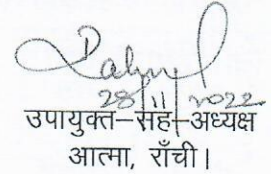 28/11/2022
उपायुक्त–सह–अध्यक्ष
आत्मा, राँची।